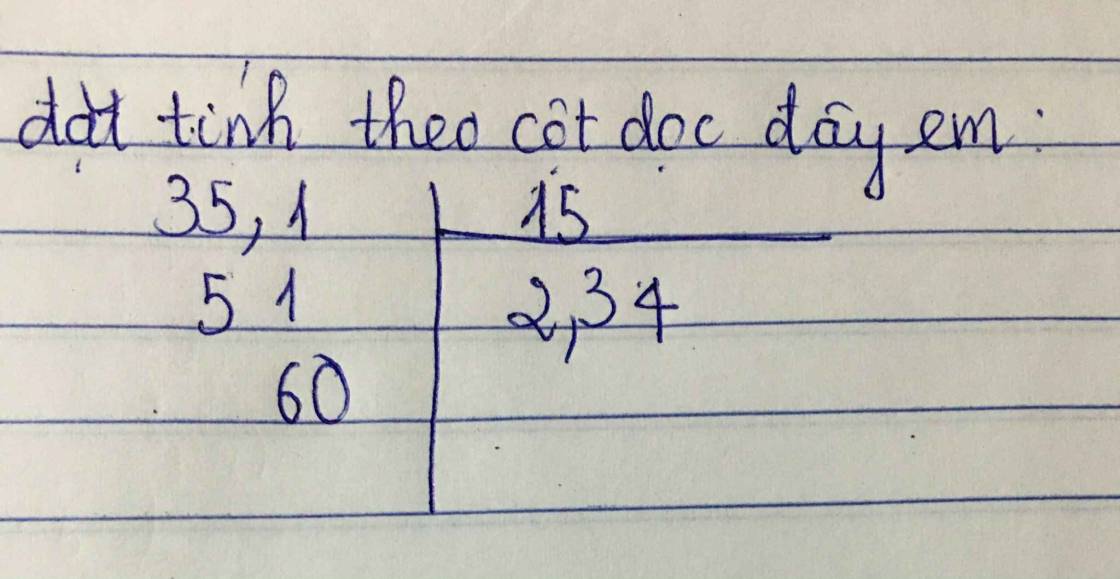 đặt tính theo cột dọc đây em:
35,1 15
51 2,34
60